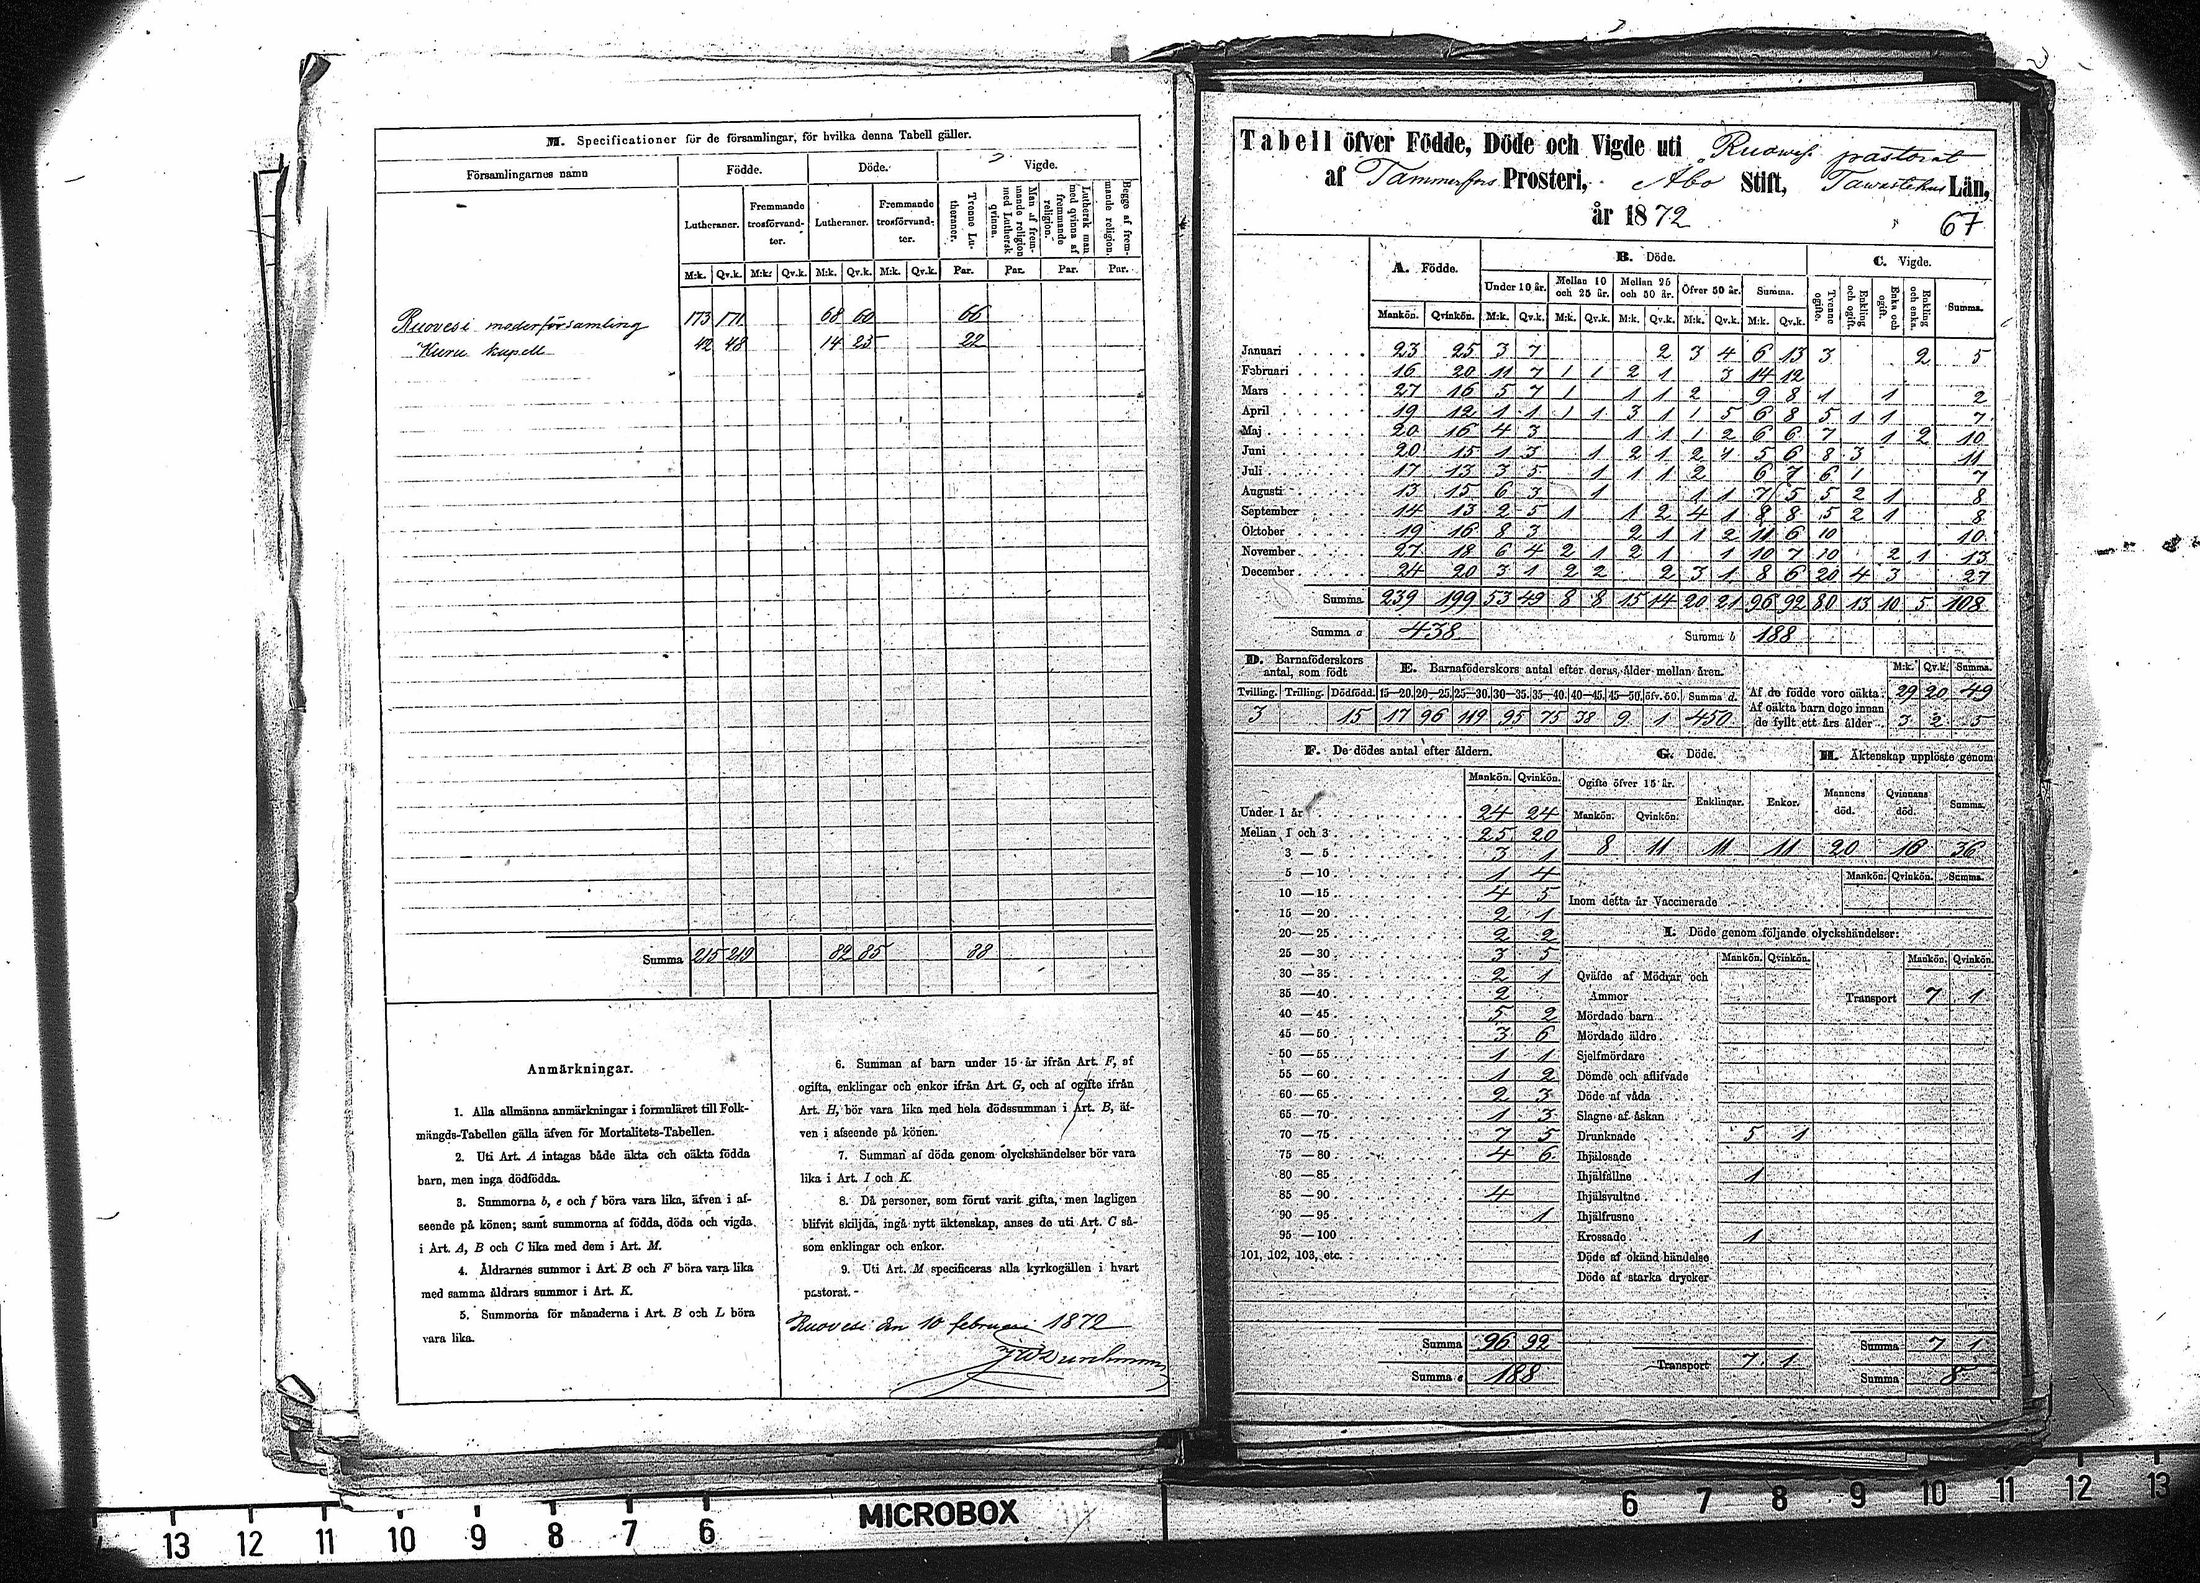 M. Specificationer för de församlingar, för hvilka denna Tabell gäller.
Församlingarnes namn Födde. Döde. Vigde.
Lutheraner. Fremmande trosförvandter. Lutheraner. Fremmande trosförvandter. Tvenne Lutheraner. Man af fremmande religion med Luthersk qvinna. Luthersk man med qvinna af fremmande religion. Begge af fremmande religion.
M:k. Qv.k. M:k. Qv.k. M:k. Qv.k. M:k. Qv.k. Par. Par. Par. Par.
Ruovesi moderförsamling 173 171 68 60 66
Kuru kapell 42 48 14 25 22
Summa 215 219 82 85 88
Anmärkningar.
1. Alla allmänna anmärkningar i formuläret till Folk-
mängds-Tabellen gälla äfven för Mortalitets-Tabellen.
2. Uti Art. A intagas både äkta och oäkta födda
barn, men inga dödfödda.
3. Summorna b, e och f böra vara lika, äfven i af-
seende på könen; samt summorna af födda, döda och vigda
i Art. A, B och C lika med dem i Art. M.
4. Åldrarnes summor i Art. B och F böra vara lika
med samma åldrars summor i Art. K.
5. Summorna för månaderna i Art. B och L böra
vara lika.
6. Summan af barn under 15 år ifrån Art. F, af
ogifta, enklingar och enkor ifrån Art. G, och af ogifte ifrån
Art. H, bör vara lika med hela dödssumman i Art. B, äf-
ven i afseende på könen.
7. Summan af döda genom olyckshändelser bör vara
lika i Art. I och K.
8. Då personer, som förut varit gifta, men lagligen
blifvit skiljda, ingå nytt äktenskap, anses de uti Art. C så-
som enklingar och enkor.
9. Uti Art. M specificeras alla kyrkogällen i hvart
pastorat.
Ruovesi den 10 februari 1872
Tabell öfver Födde, Döde och Vigde uti Ruovesi pastorat
af Tammerfors Prosteri, Åbo Stift, Tawastehus Län,
år 1872
67
A. Födde. B. Döde. C. Vigde.
Under 10 år. Mellan 10 och 25 år. Mellan 25 och 50 år. Öfver 50 år. Summa. Tvenne ogifte. Enkling och ogift. Enka och ogift. Enkling och enka. Summa.
Mankön. Qvinkön. M:k. Qv.k. M:k. Qv.k. M:k. Qv.k. M:k. Qv.k. M:k. Qv.k.
Januari 23 25 3 7 2 3 4 6 13 3 2 5
Februari 16 20 11 7 1 1 2 1 3 14 12
Mars 27 16 5 7 1 1 1 2 9 8 1 1 2
April 19 12 1 1 1 1 3 1 1 5 6 8 5 1 1 7
Maj 20 16 4 3 1 1 1 2 6 6 7 1 2 10
Juni 20 15 1 3 1 2 1 2 1 5 6 8 3 11
Juli 17 13 3 5 1 1 1 2 6 7 6 1 7
Augusti 13 15 6 3 1 1 1 7 5 5 2 1 8
September 14 13 2 5 1 1 2 4 1 8 8 5 2 1 8
Oktober 19 16 8 3 2 1 1 2 11 6 10 10
November 27 18 6 4 2 1 2 1 1 10 7 10 2 1 13
December 24 20 3 1 2 2 2 3 1 8 6 20 4 3 27
Summa 239 199 53 49 8 8 15 14 20 21 96 92 80 13 10 5 108
Summa a 438 Summa b 188
D. Barnaföderskors antal, som födt E. Barnaföderskors antal efter deras ålder mellan åren. M:k. Qv.k. Summa.
Tvilling. Trilling. Dödfödd. 15—20. 20—25. 25—30. 30—35. 35—40. 40—45. 45—50. öfv. 50. Summa d.
3 15 17 96 119 95 75 38 9 1 450
Af de födde voro oäkta 29 20 49
Af oäkta barn dogo innan de fyllt ett års ålder 3 2 5
F. De dödes antal efter åldern.
Mankön. Qvinkön.
Under 1 år 24 24
Mellan 1 och 3 25 20
3 — 5 3 1
5 — 10 1 4
10 — 15 4 5
15 — 20 2 1
20 — 25 2 2
25 — 30 3 5
30 — 35 2 1
35 — 40 2
40 — 45 5 2
45 — 50 3 6
50 — 55 1 1
55 — 60 1 2
60 — 65 2 3
65 — 70 1 3
70 — 75 7 5
75 — 80 4 6
80 — 85
85 — 90 4
90 — 95 1
95 — 100
101, 102, 103, etc.
Summa 96 92
Summa e 188
G. Döde. H. Äktenskap upplöste genom
Ogifte öfver 15 år. Enklingar. Enkor. Mannens död. Qvinnans död. Summa.
Mankön. Qvinkön.
8 11 11 11 20 16 36
Mankön. Qvinkön. Summa.
Inom detta år Vaccinerade
I. Döde genom följande olyckshändelser:
Mankön. Qvinkön. Mankön. Qvinkön.
Qväfde af Mödrar och
Ammor Transport 7 1
Mördade barn
Mördade äldre
Sjelfmördare
Dömde och aflifvade
Döde af våda
Slagne af åskan
Drunknade 5 1
Ihjälosade
Ihjälfallne 1
Ihjälsvultne
Ihjälfrusne
Krossade 1
Döde af okänd händelse
Döde af starka drycker
Summa 7 1
Transport 7 1
Summa 8
13 12 11 10 9 8 7 6 MICROBOX 6 7 8 9 10 11 12 13